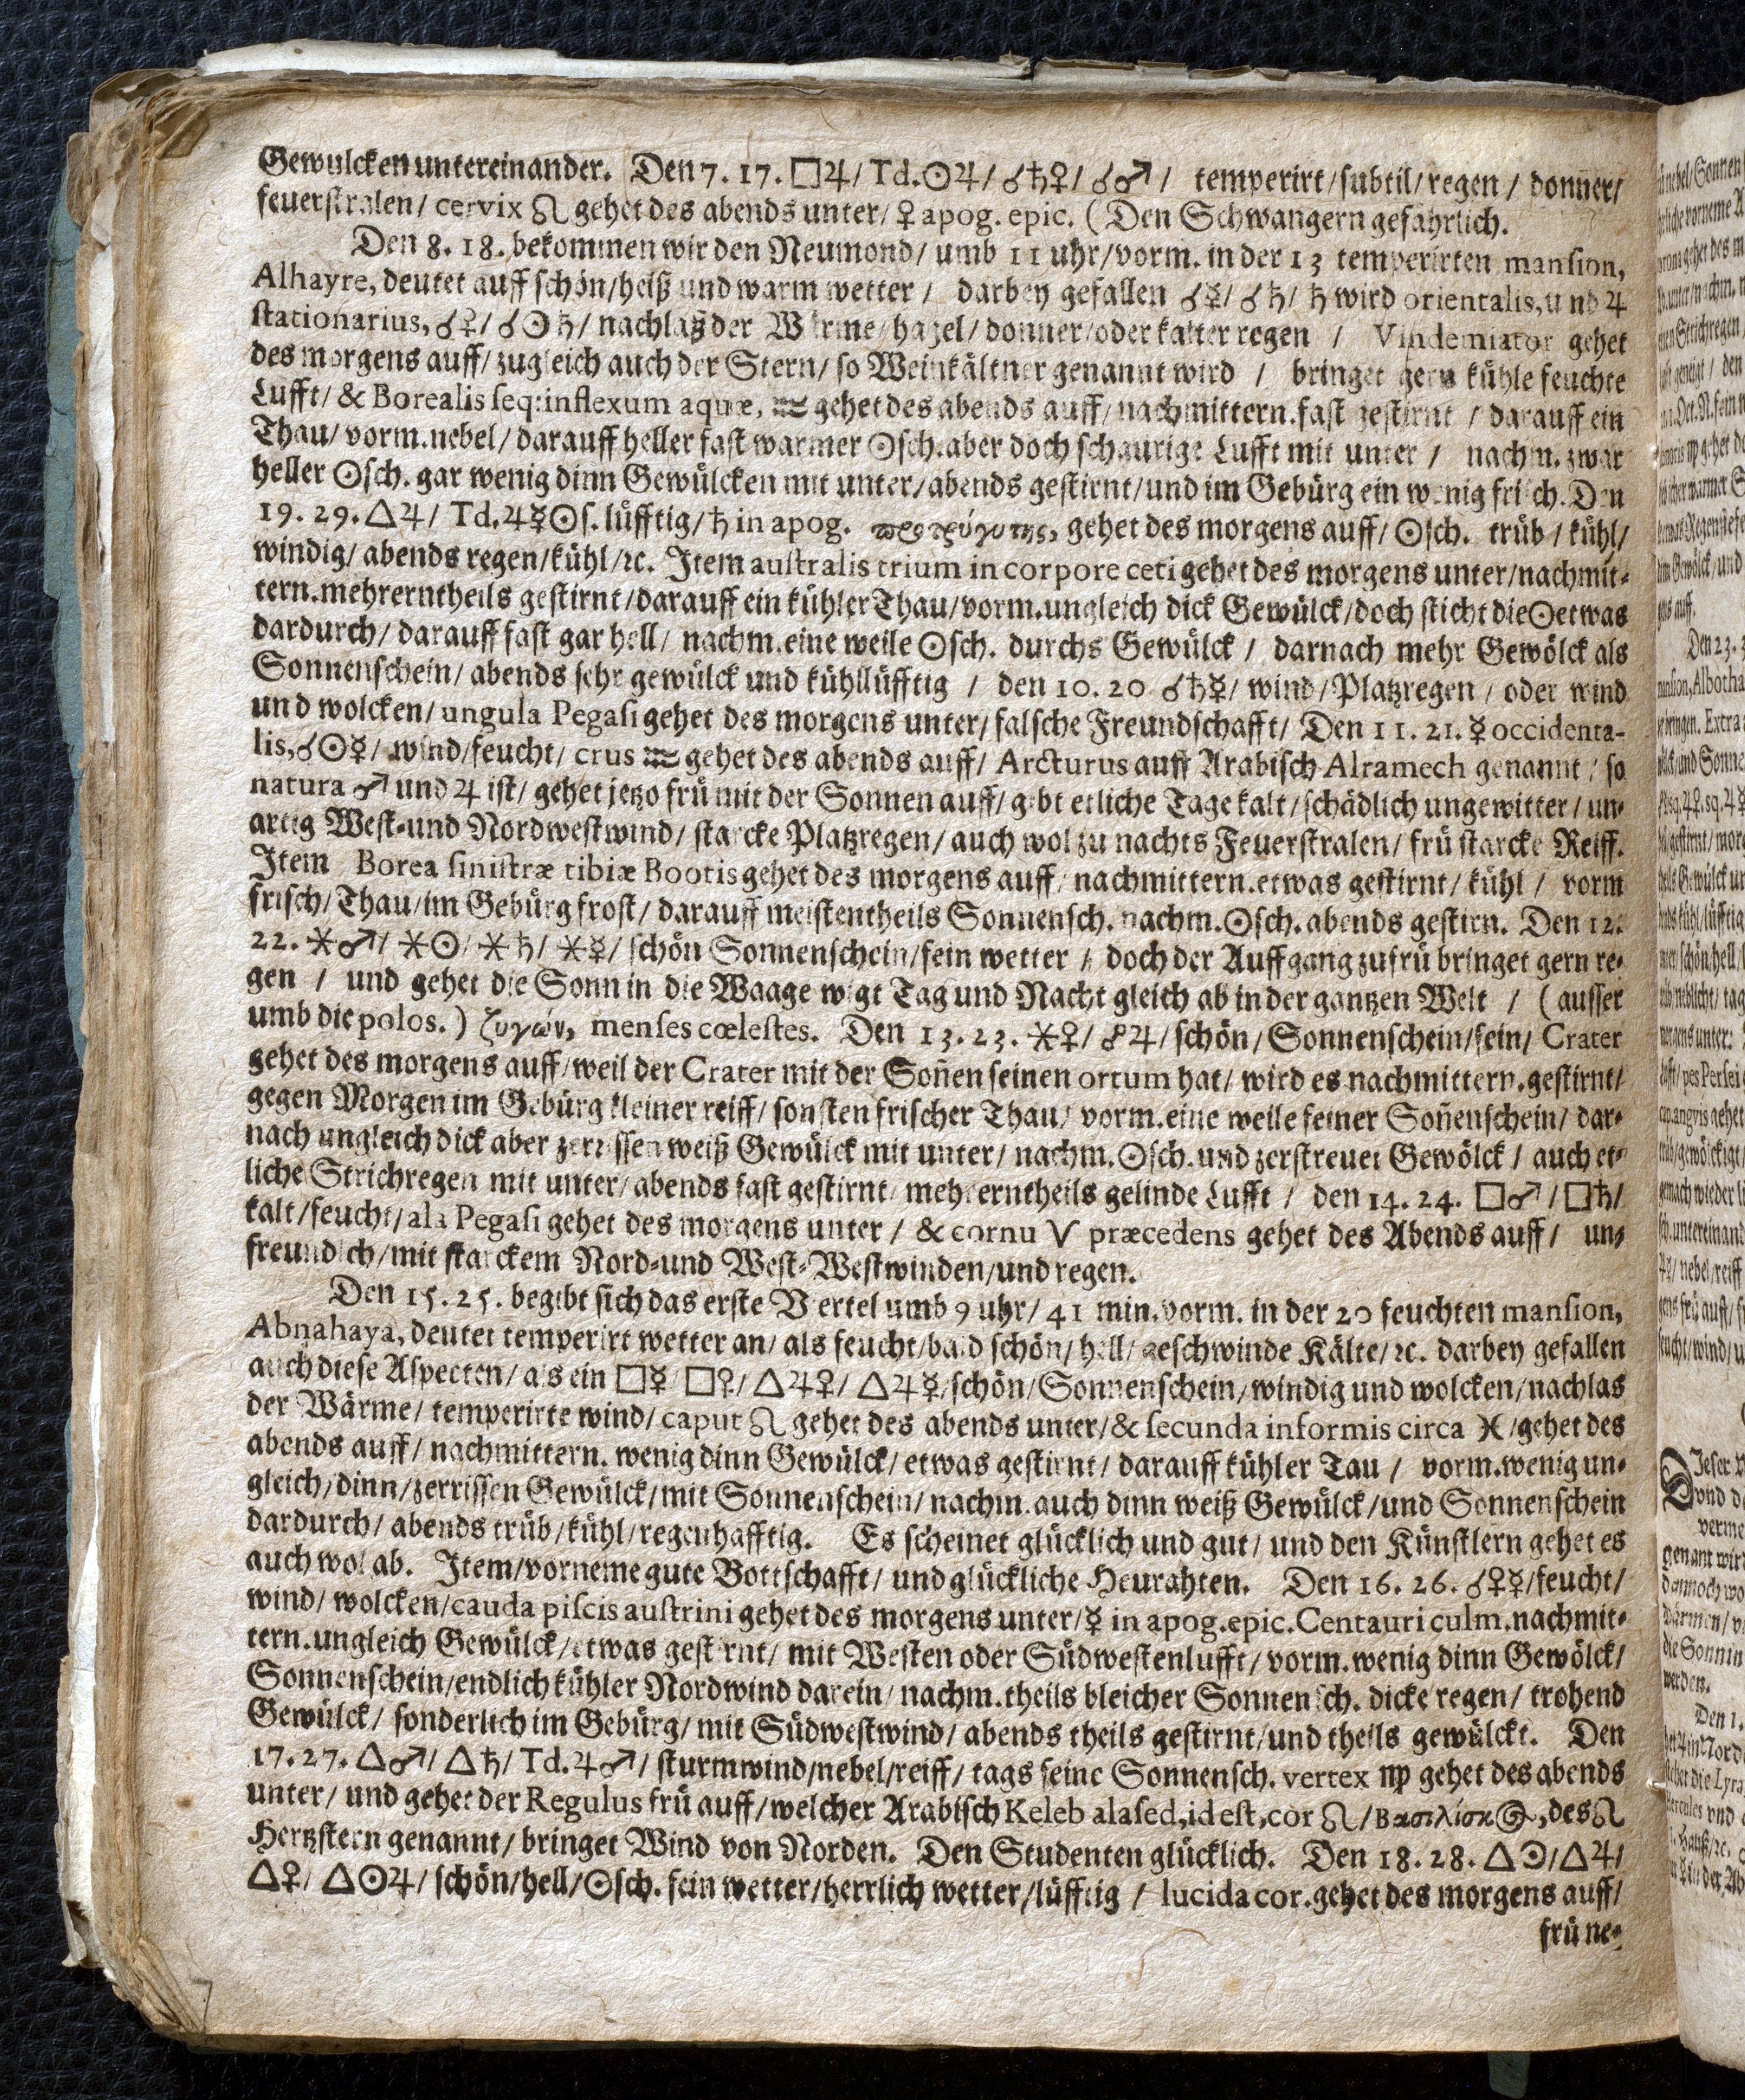 Gewulcken untereinander. Den 7. 17. □♃/ Td.☉♃/ ☌♄♀/ ☌♂/ temperirt/subtil/regen/ donñer/
feuerstralen/ cervix ♌ gehet des abends unter/ ♀ apog. epic. (Den Schwangern gefährlich.
Den 8. 18. bekommen wir den Neumond/ umb 11 uhr/vorm. in der 13 temperirten mansion,
Alhayre, deutet auff schön/heiß und warm wetter/ darbey gefallen ☌☿/ ☌♄/ ♄ wird orientalis, und ♃
stationarius, ☌♀/ ☌☉♄/ nachlaß der Wärme/hagel/donner/oder kalter regen / Vindemiator gehet
des morgens auff/ zugleich auch der Stern/ so Weinkältner genannt wird / bringet gern kühle feuchte
Lufft/ & Borealis seq: inflexum aquæ, ♒ gehet des abends auff/ nachmittern. fast gestirnt / darauff ein
Thau/ vorm. nebel/ darauff heller fast warmer ☉sch. aber doch schaurige Lufft mit unter / nachm. zwar
heller ☉sch. gar wenig dinn Gewülcken mit unter/abends gestirnt/und im Gebürg ein wenig frisch. Den
19. 29. △♃/ Td.♃☿☉s. lüfftig/ ♄ in apog. προτρύγυτης, gehet des morgens auff/ ☉sch. trüb/ kühl/
windig/ abends regen/kühl/ꝛc. Item australis trium in corpore ceti gehet des morgens unter/nachmit-
tern. mehrerntheils gestirnt/darauff ein kühler Thau/vorm. ungleich dick Gewülck/doch sticht die☉etwas
dardurch/ darauff fast gar hell/ nachm. eine weile ☉sch. durchs Gewülck / darnach mehr Gewölck als
Sonnenschein/ abends sehr gewülck und kühllüfftig / den 10. 20 ☌♄☿/ wind/Platzregen / oder wind
und wolcken/ ungula Pegasi gehet des morgens unter/ falsche Freundschafft/ Den 11. 21. ☿ occidenta-
lis, ☌☉☿/ wind/feucht/ crus ♒ gehet des abends auff/ Arcturus auff Arabisch Alramech genannt / so
natura ♂ und ♃ ist/ gehet jetzo frü mit der Sonnen auff/ gibt etliche Tage kalt/schädlich ungewitter/ un-
artig West-und Nordwestwind/ starcke Platzregen/ auch wol zu nachts Feuerstralen/ frü starcke Reiff.
Item Borea sinistræ tibiæ Bootis gehet des morgens auff/ nachmittern. etwas gestirnt/ kühl / vorm
frisch/Thau/im Gebürg frost/ darauff meistentheils Sonnensch. nachm. ☉sch. abends gestirn. Den 12.
22. ⚹♂/ ⚹☉/ ⚹♄/ ⚹☿/ schön Sonnenschein/fein wetter / doch der Auffgang zufrü bringet gern re-
gen / und gehet die Sonn in die Waage wigt Tag und Nacht gleich ab in der gantzen Welt / (ausser
umb die polos.) ζυγών, menses cœlestes. Den 13. 23. ⚹♀/ ☍♃/ schön/ Sonnenschein/fein/ Crater
gehet des morgens auff/weil der Crater mit der Soñen seinen ortum hat/ wird es nachmittern. gestirnt/
gegen Morgen im Gebürg kleiner reiff/ sonsten frischer Thau/ vorm. eine weile feiner Soñenschein/ dar-
nach ungleich dick aber zerrissen weiß Gewülck mit unter/ nachm. ☉sch. und zerstreuet Gewölck / auch et-
liche Strichregen mit unter/ abends fast gestirnt/ mehrerntheils gelinde Lufft / den 14. 24. □♂/□♄/
kalt/feucht/ ala Pegasi gehet des morgens unter / & cornu V præcedens gehet des Abends auff/ un-
freundlich/mit starckem Nord-und West-Westwinden/und regen.
Den 15. 25. begibt sich das erste Viertel umb 9 uhr/ 41 min. vorm. in der 20 feuchten mansion,
Abnahaya, deutet temperirt wetter an/ als feucht/bald schön/ hell/ geschwinde Kälte/ ꝛc. darbey gefallen
auch diese Aspecten/ als ein □☿ □♀/ △♃♀/ △♃☿/schön/Sonnenschein/windig und wolcken/nachlas
der Wärme/ temperirte wind/ caput ♌ gehet des abends unter/& secunda informis circa ♓ /gehet des
abends auff/ nachmittern. wenig dinn Gewülck/ etwas gestirnt/ darauff kühler Tau / vorm. wenig un-
gleich/dinn/zerrissen Gewülck/mit Sonnenschein/ nachm. auch dinn weiß Gewülck/und Sonnenschein
dardurch/ abends trüb/kühl/regenhafftig. Es scheinet glücklich und gut/ und den Künstlern gehet es
auch wol ab. Item/vorneme gute Bottschafft/ und glückliche Heurahten. Den 16. 26. ☌♀☿/feucht/
wind/ wolcken/cauda piscis austrini gehet des morgens unter/☿ in apog. epic. Centauri culm. nachmit-
tern. ungleich Gewülck/etwas gestirnt/ mit Westen oder Südwestenlufft/ vorm. wenig dinn Gewölck/
Sonnenschein/endlich kühler Nordwind darein/ nachm. theils bleicher Sonnensch. dicke regen/ trohend
Gewülck/ sonderlich im Gebürg/ mit Südwestwind/ abends theils gestirnt/und theils gewülckt. Den
17. 27. △♂/ △♄/ Td. ♃♂/ sturmwind/nebel/reiff/ tags feine Sonnensch. vertex ♍ gehet des abends
unter/ und gehet der Regulus frü auff/welcher Arabisch Keleb alased, id est, cor ♌ /Βασιλίσκος, des ♌
Hertzstern genannt/ bringet Wind von Norden. Den Studenten glücklich. Den 18. 28. △☉/△♃/
△♀/ △☉♃/ schön/hell/☉sch. fein wetter/herrlich wetter/lüfftig / lucida cor. gehet des morgens auff/
frü ne-